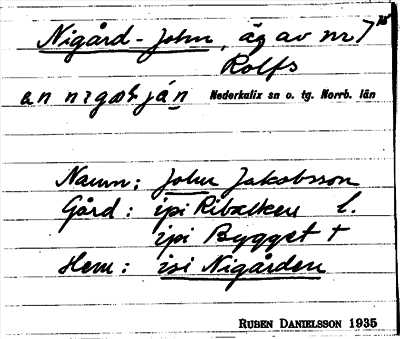 Nigård-John, äg av nr 7 15
Rolfs
an nigoʰ ján Nederkalix sn o. tg. Norrb. län
Namn: John Jakobsson
Gård: ipi Ribælken l.
ipi Bygget +
Hem: isi Nigården
RUBEN DANIELSSON 1935